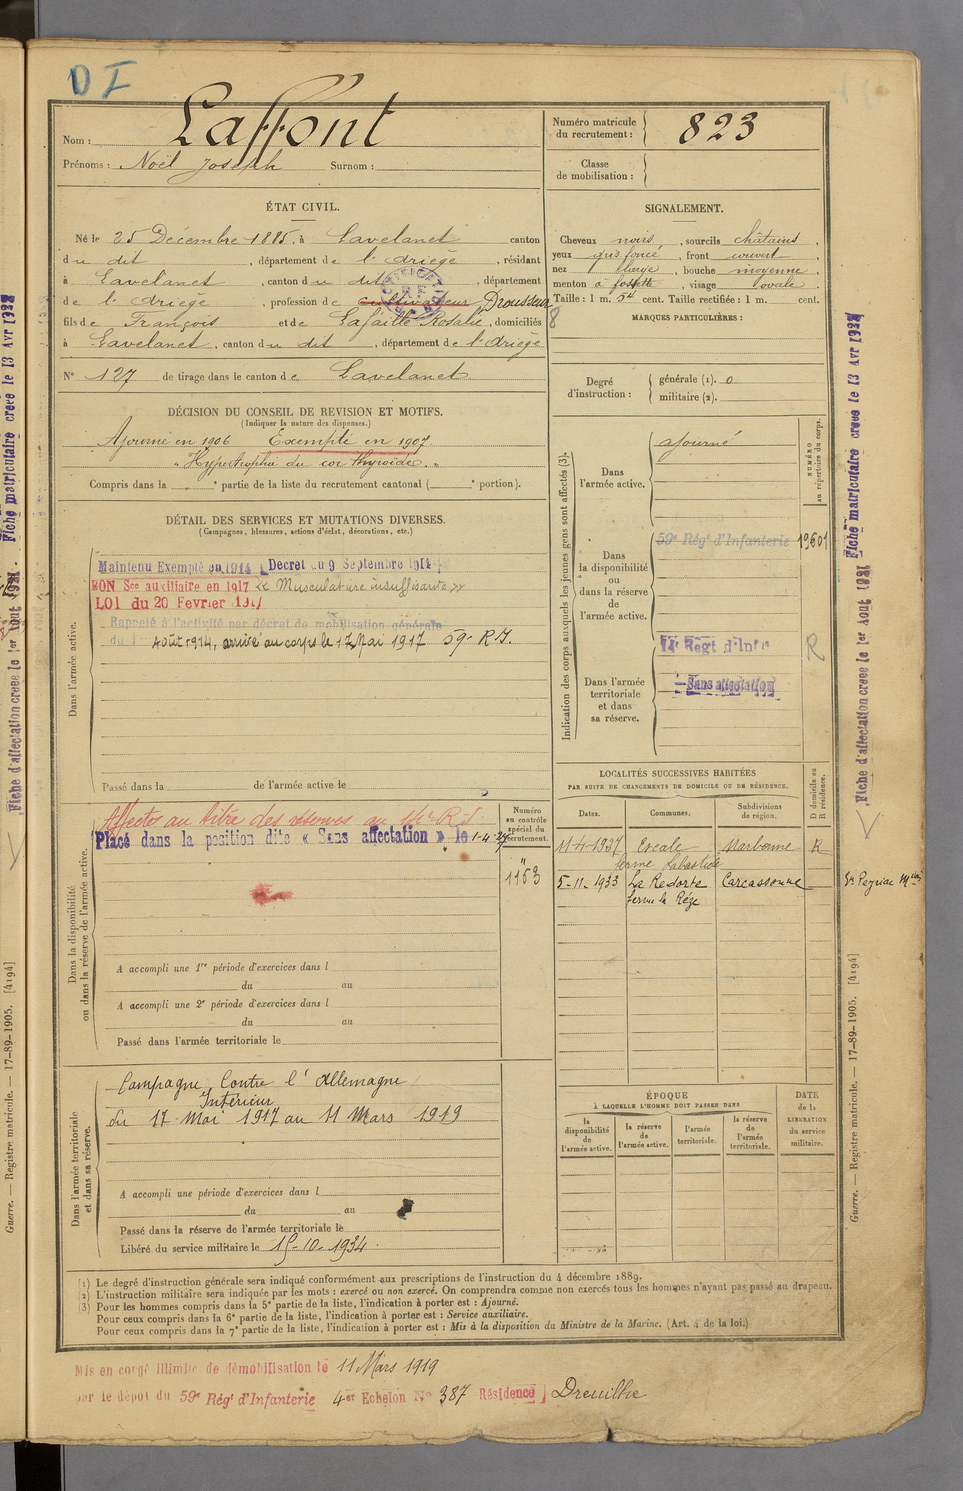 D I
Nom : Laffont
Prénoms : Noël Joseph Surnom :
Numéro matricule du recrutement : 823
Classe de mobilisation :
ÉTAT CIVIL.
Né le 25 Décembre 1885, à Lavelanet canton
du dit, département de l'Ariège, résidant
à Lavelanet, canton du dit, département
de l'Ariège, profession de cultivateur Drousseur
fils de François et de Lafaille Rosalie, domiciliés
à Lavelanet, canton du dit, département de l'Ariège
N° 127 de tirage dans le canton de Lavelanet
SIGNALEMENT.
Cheveux noirs, sourcils châtains,
yeux gris foncé, front couvert,
nez large, bouche moyenne,
menton à fossette, visage ovale.
Taille : 1 m. 54 cent. Taille rectifiée : 1 m. cent.
8
MARQUES PARTICULIÈRES :
Degré d'instruction : générale (1). 0
militaire (2).
DÉCISION DU CONSEIL DE REVISION ET MOTIFS.
(Indiquer la nature des dispenses.)
Ajourné en 1906 Exempté en 1907.
" Hypertrophie du cor thyroïde. "
Compris dans la " e partie de la liste du recrutement cantonal ( e portion).
DÉTAIL DES SERVICES ET MUTATIONS DIVERSES.
(Campagnes, blessures, actions d'éclat, décorations, etc.)
Dans l'armée active.
Maintenu Exempté en 1914 Décret du 9 Septembre 1914
BON Sce auxiliaire en 1917 Musculature insuffisante
LOI du 20 Fevrier 1917
Rappelé à l'activité par décret de mobilisation générale
du 1er Août 1914, arrivé au corps le 17 Mai 1917 59e R.I.
Passé dans la de l'armée active le
Indication des corps auxquels les jeunes gens sont affectés (3).
NUMÉRO au répertoire du corps.
Dans l'armée active.
ajourné
Dans la disponibilité ou dans la réserve de l'armée active.
59e Régt d'Infanterie 19601
Dans l'armée territoriale et dans sa réserve.
Régt d'Inf
Sans affectation
R
LOCALITÉS SUCCESSIVES HABITÉES
PAR SUITE DE CHANGEMENTS DE DOMICILE OU DE RÉSIDENCE.
Dates. Communes. Subdivisions de région. D domicile ou R résidence.
Escale Narbonne R
ferme Labastide
5-11-1933 La Redorte Carcassonne
ferme la Rége
Dans la disponibilité ou dans la réserve de l'armée active.
Numéro au contrôle spécial du recrutement.
Affecté au titre des réserves au
Placé dans la position dite « Sans affectation » le 1-4-27
1153
A accompli une 1re période d'exercices dans l
du au
A accompli une 2e période d'exercices dans l
du au
Passé dans l'armée territoriale le
Dans l'armée territoriale et dans sa réserve.
Campagne Contre l'Allemagne
Intérieur
du 17 Mai 1917 au 11 Mars 1919
A accompli une période d'exercices dans l
du au
Passé dans la réserve de l'armée territoriale le
Libéré du service militaire le 15-10-1934
ÉPOQUE
À LAQUELLE L'HOMME DOIT PASSER DANS
la disponibilité de l'armée active. la réserve de l'armée active. l'armée territoriale. la réserve de l'armée territoriale.
DATE de la LIBÉRATION du service militaire.
(1) Le degré d'instruction générale sera indiqué conformément aux prescriptions de l'instruction du 4 décembre 1889.
(2) L'instruction militaire sera indiquée par les mots : exercé ou non exercé. On comprendra comme non exercés tous les hommes n'ayant pas passé au drapeau.
(3) Pour les hommes compris dans la 5e partie de la liste, l'indication à porter est : Ajourné.
Pour ceux compris dans la 6e partie de la liste, l'indication à porter est : Service auxiliaire.
Pour ceux compris dans la 7e partie de la liste, l'indication à porter est : Mis à la disposition du Ministre de la Marine. (Art. 4 de la loi.)
Mis en congé illimité de démobilisation le 11 Mars 1919
par le dépôt du 59e Régt d'Infanterie 4er Echelon No 387 Résidence Dreuilhe
Guerre. — Registre matricule. — 17-89-1905. [4194]
Fiche d'affectation creee le 1er Aout 1921. Fiche matriculaire creee le 13 Avr
Guerre. — Registre matricule. — 17-89-1905. [4194]
Fiche d'affectation creee le 1er Aout 1921 Fiche matriculaire creee le 13 Avr